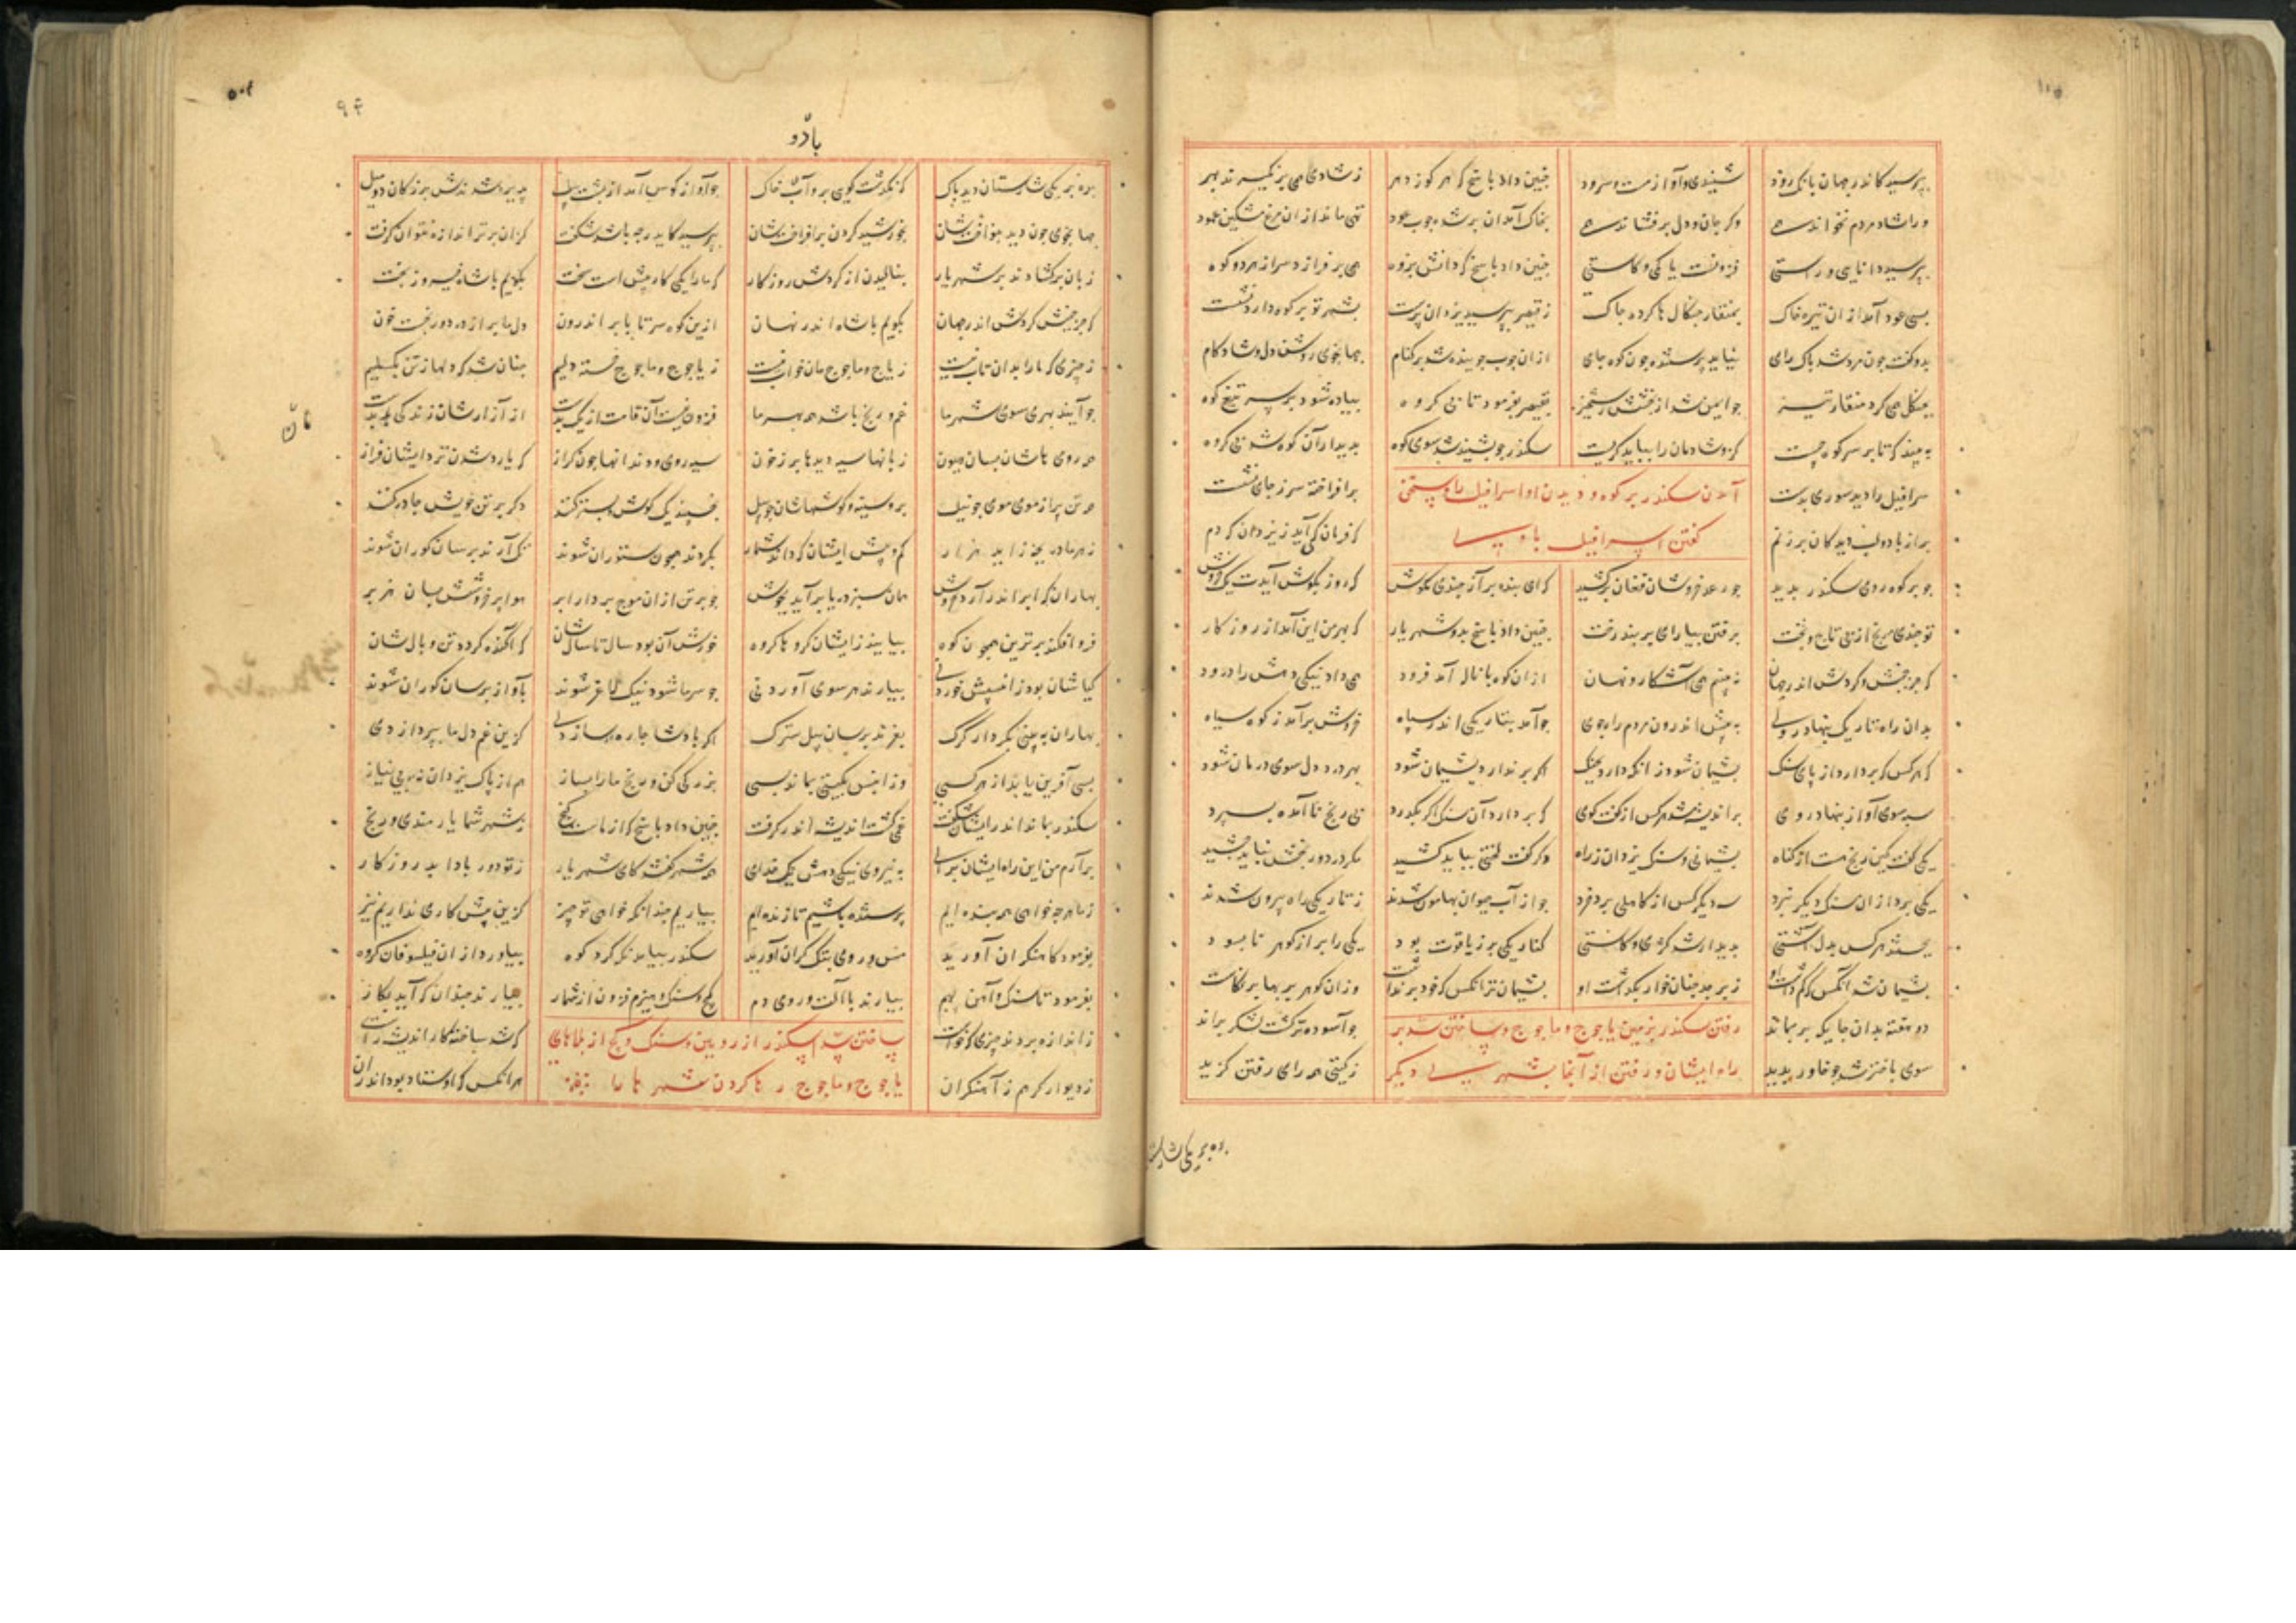 بپرسید کاندر جهان بانک رود شنیدی و آواز مست و سرود چنین داد پاسخ که هر کو ز دهر ز شادی همی برنگیرند بهر
ورا شاد مردم نخواند همی وگر جان و دل برفشاند همی بخاک آمد آن برشده چوب عود تهی ماند از آن مرغ مشکین عمود
بپرسید دانایی و راستی فزونست یا کمی و کاستی چنین داد پاسخ که دانش پژوه همی برفرازد سر از هر دو کوه
بسوی عمود آمد از آن تیره خاک بمنقار چنگالها کرده پاک ز قیصر بپرسید یزدان پرست بشهر تو بر کوه دارد نشست
بدو گفت چون مرد شد پاک رای نیابد پرستنده چون کوه جای از آن چوب جوینده شد بر کنام جهانجوی روشن دل و شادکام
بچنگال می کرد منقار تیز چو ایمن شد از بخشش رستخیز بقیصر بفرمود تا بی گروه پیاده شود بر سر تیغ کوه
به بیند که تا بر سر کوه چیست کزو شادمان را بباید گریست سکندر چو بشنید شد سوی کوه بدیدار آن کوه شد بی گروه
آمدن سکندر بر کوه و دیدن او اسرافیل را و سخن
گفتن اسرافیل با وی
سرافیل را دید صوری بدست برافراخته سر ز جای نشست
پر از باد و لب دیدگان پر ز نم که فرمان کی آید ز یزدان که دم
چو بر کوه روی سکندر بدید چو رعد خروشان فغان برکشید که ای بنده بر آز چندی مکوش که روزی بگوش آیدت یک خروش
تو چندین مرنج از پی تاج و تخت برفتن بیارای بربند رخت چنین داد پاسخ بدو شهریار که بهر من این آمد از روزکار
که جز جنبش و کردش اندر جهان نه بینم همی آشکار و نهان از آن کوه با ناله آمد فرود همی داد نیکی دهش را درود
بدان راه تاریک بنهاد روی به پیش اندرون مردم راه جوی چو آمد بتاریکی اندر سپاه خروشی برآمد ز کوه سیاه
که هر کس که بردارد از پای سنک پشیمان شود ز آنکه دارد بچنک اگر برندارد پشیمان شود بهر درد دل سوی درمان شود
سپه سوی آواز بنهاد روی پر اندیشه شد هر کس از گفت کوی که بردارد آن سنک اگر بگذرد پی رنج ناآمده بسپرد
یکی گفت کین رنج هست از گناه پشیمانی و سنک یزدان ز راه دگر گفت لختی بباید کشید مگر درد و رنجش نباید چشید
یکی برد از آن سنک دیگر نبرد سدیگر کس از کاهلی برد خرد چو از آب حیوان بهامون شدند ز تاریکی راه بیرون شدند
بجستند هر کس بدل آستی پدیدار شد کژی و کاستی کنار یکی پر ز یاقوت بود یکی را پر از گوهر نابسود
پشیمان شد آنکس که کم داشت او زبرجد چنان خوار بگذاشت او پشیمان تر آنکس که خود برنداشت وز آن گوهر پربها برنگاشت
دو هفته بدان جایگه بر بماند چو آسوده تر گشت لشکر براند
رفتن سکندر بزمین یاجوج و ماجوج و ساختن سد بر
راه ایشان و رفتن از آنجا بشهری دیگر
سوی باختر شد چو خاور بدید ز گیتی همه رای رفتن گزید
بره بر یکی شارستان
بادو
۹۴
بره بر یکی شارستان دید پاک که نگذشت گویی برو آب خاک چو آواز کوس آمد از پشت پیل پذیره شدندش بزرگان دو میل
جهانجوی چون دید بنواختشان بخورشید گردن برافراختشان بپرسید کاید چه باشد شگفت کزان برتر اندازه نتوان گرفت
زبان برگشادند بر شهریار بنالیدن از گردش روزکار که ما را یکی کار پیش است سخت بگوئیم با شاه فیروز بخت
که جز جنبش و گردش اندر جهان بگوئیم با شاه اندر نهان ازین کوه سر تا بابر اندرون دل ما پر از درد و رنجست خون
ز چیزی که ما را بدان تاب نیست ز یاجوج و ماجوج مان خواب نیست ز یاجوج و ماجوج خسته دلیم چنان شد که دلها ز تن بگسلیم
چو آیند بهری سوی شهر ما غم و رنج باشد همه بهر ما فزون نیست آن قامت از یک بدست از آزارشان زندگی مان بدست
همه رویهاشان بسان هیون زبانها سیه دیدها پر ز خون سیه روی و دندانها چون گراز که یارد شدن نزد ایشان فراز
همه تن پر از موی موی چو نیل بر و سینه و گوشهاشان چو پیل بخسپند یک گوش بستر کنند دگر بر تن خویش چادر کنند
ز هر ماده ای بچه زاید هزار کم و بیش ایشان که داند شمار بگردند همچون ستوران شوند تک آرند بر سان گوران شوند
بهاران که ابر اندر آرد خروش همان سبز دریا برآید بجوش چو بر تن از آن موج بردارد ابر هوا بر خروشد بسان هزبر
فرو افکند برترین همچو کوه بیایند زایشان گروها گروه خورش آن بود سال تا سال شان که آگنده گردد تن و یال شان
گیاشان بود زان سپس خوردنی بیارند هر سوی آوردنی چو سرما شود نیک لاغر شوند بآواز بر سان گوران شوند
بهاران به بینی بکردار گرگ بغرند بر سان پیل سترگ اگر پادشا چاره سازدی کزین غم دل ما بپردازدی
بسی آفرین یابد از هر کسی وزان پس بگیتی بماند بسی بزرگی کن و رنج ما را بساز هم از پاک یزدان نه ای بی نیاز
سکندر بماند اندر ایشان شگفت غمی گشت اندیشه اندر گرفت چنین داد پاسخ که از ماست گنج بشهر شما یارمندی و رنج
برآرم من این راه ایشان برای به نیروی نیکی دهش یک خدای همه شهر گفتند کای شهریار ز تو دور بادا بد روزکار
ز ما هر چه خواهی همه بنده ایم پرستنده باشیم تا زنده ایم بیاریم چندانکه خواهی تو چیز کزین بیش کاری نداریم نیز
سکندر بیامد نگه کرد کوه بیاورد از آن فیلسوفان گروه
بفرمود کاهنگران آورید مس و روی و پتک گران آورید
بفرمود تا سنگ و آهن بهم بیارند با آلت و روی دم گچ و سنگ و هیزم فزون از شمار بیارند چندان که آید بکار
ز اندازه بردند چیزی که خواست که شد ساخته کار اندیشه راست
ساختن سد اسکندر از رویین و سنگ و گچ از بلاهای
یاجوج و ماجوج رها کردن شهر ها را
ز دیوارگر هم ز آهنگران هر آنکس که استاد بود اندر آن